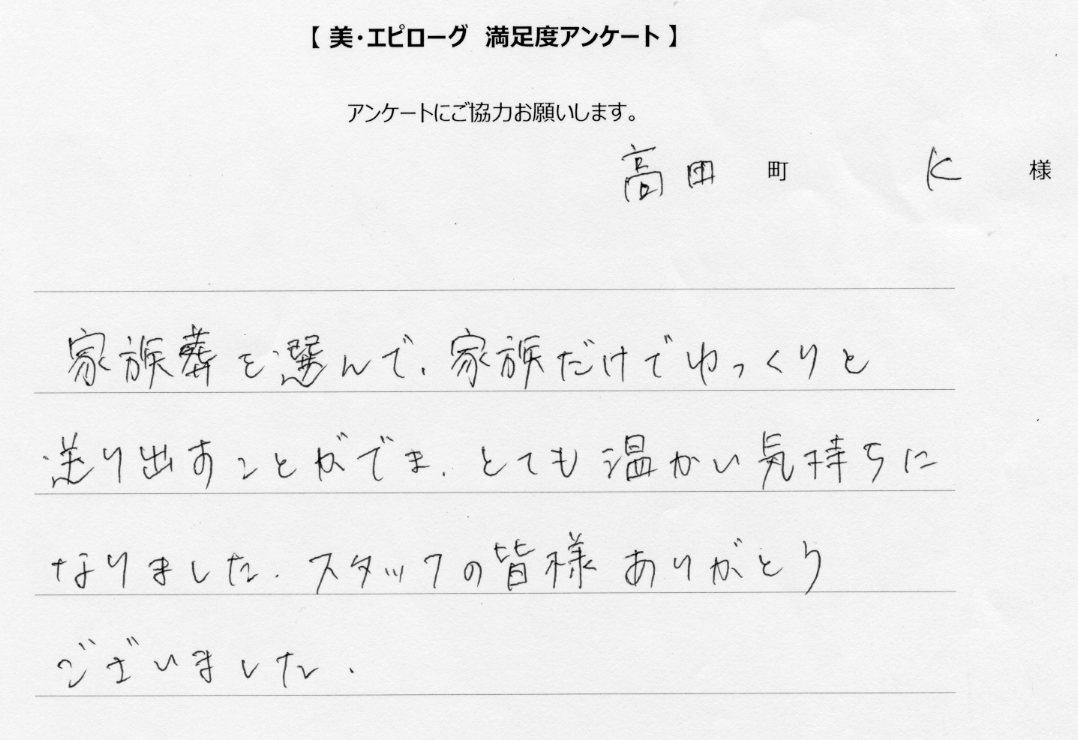 【 美・エピローグ 満足度アンケート 】
アンケートにご協力お願いします。
高田 町 K 様
家族葬を選んで、家族だけでゆっくりと
送り出すことができ、とても温かい気持ちに
なりました。スタッフの皆様ありがとう
ございました。